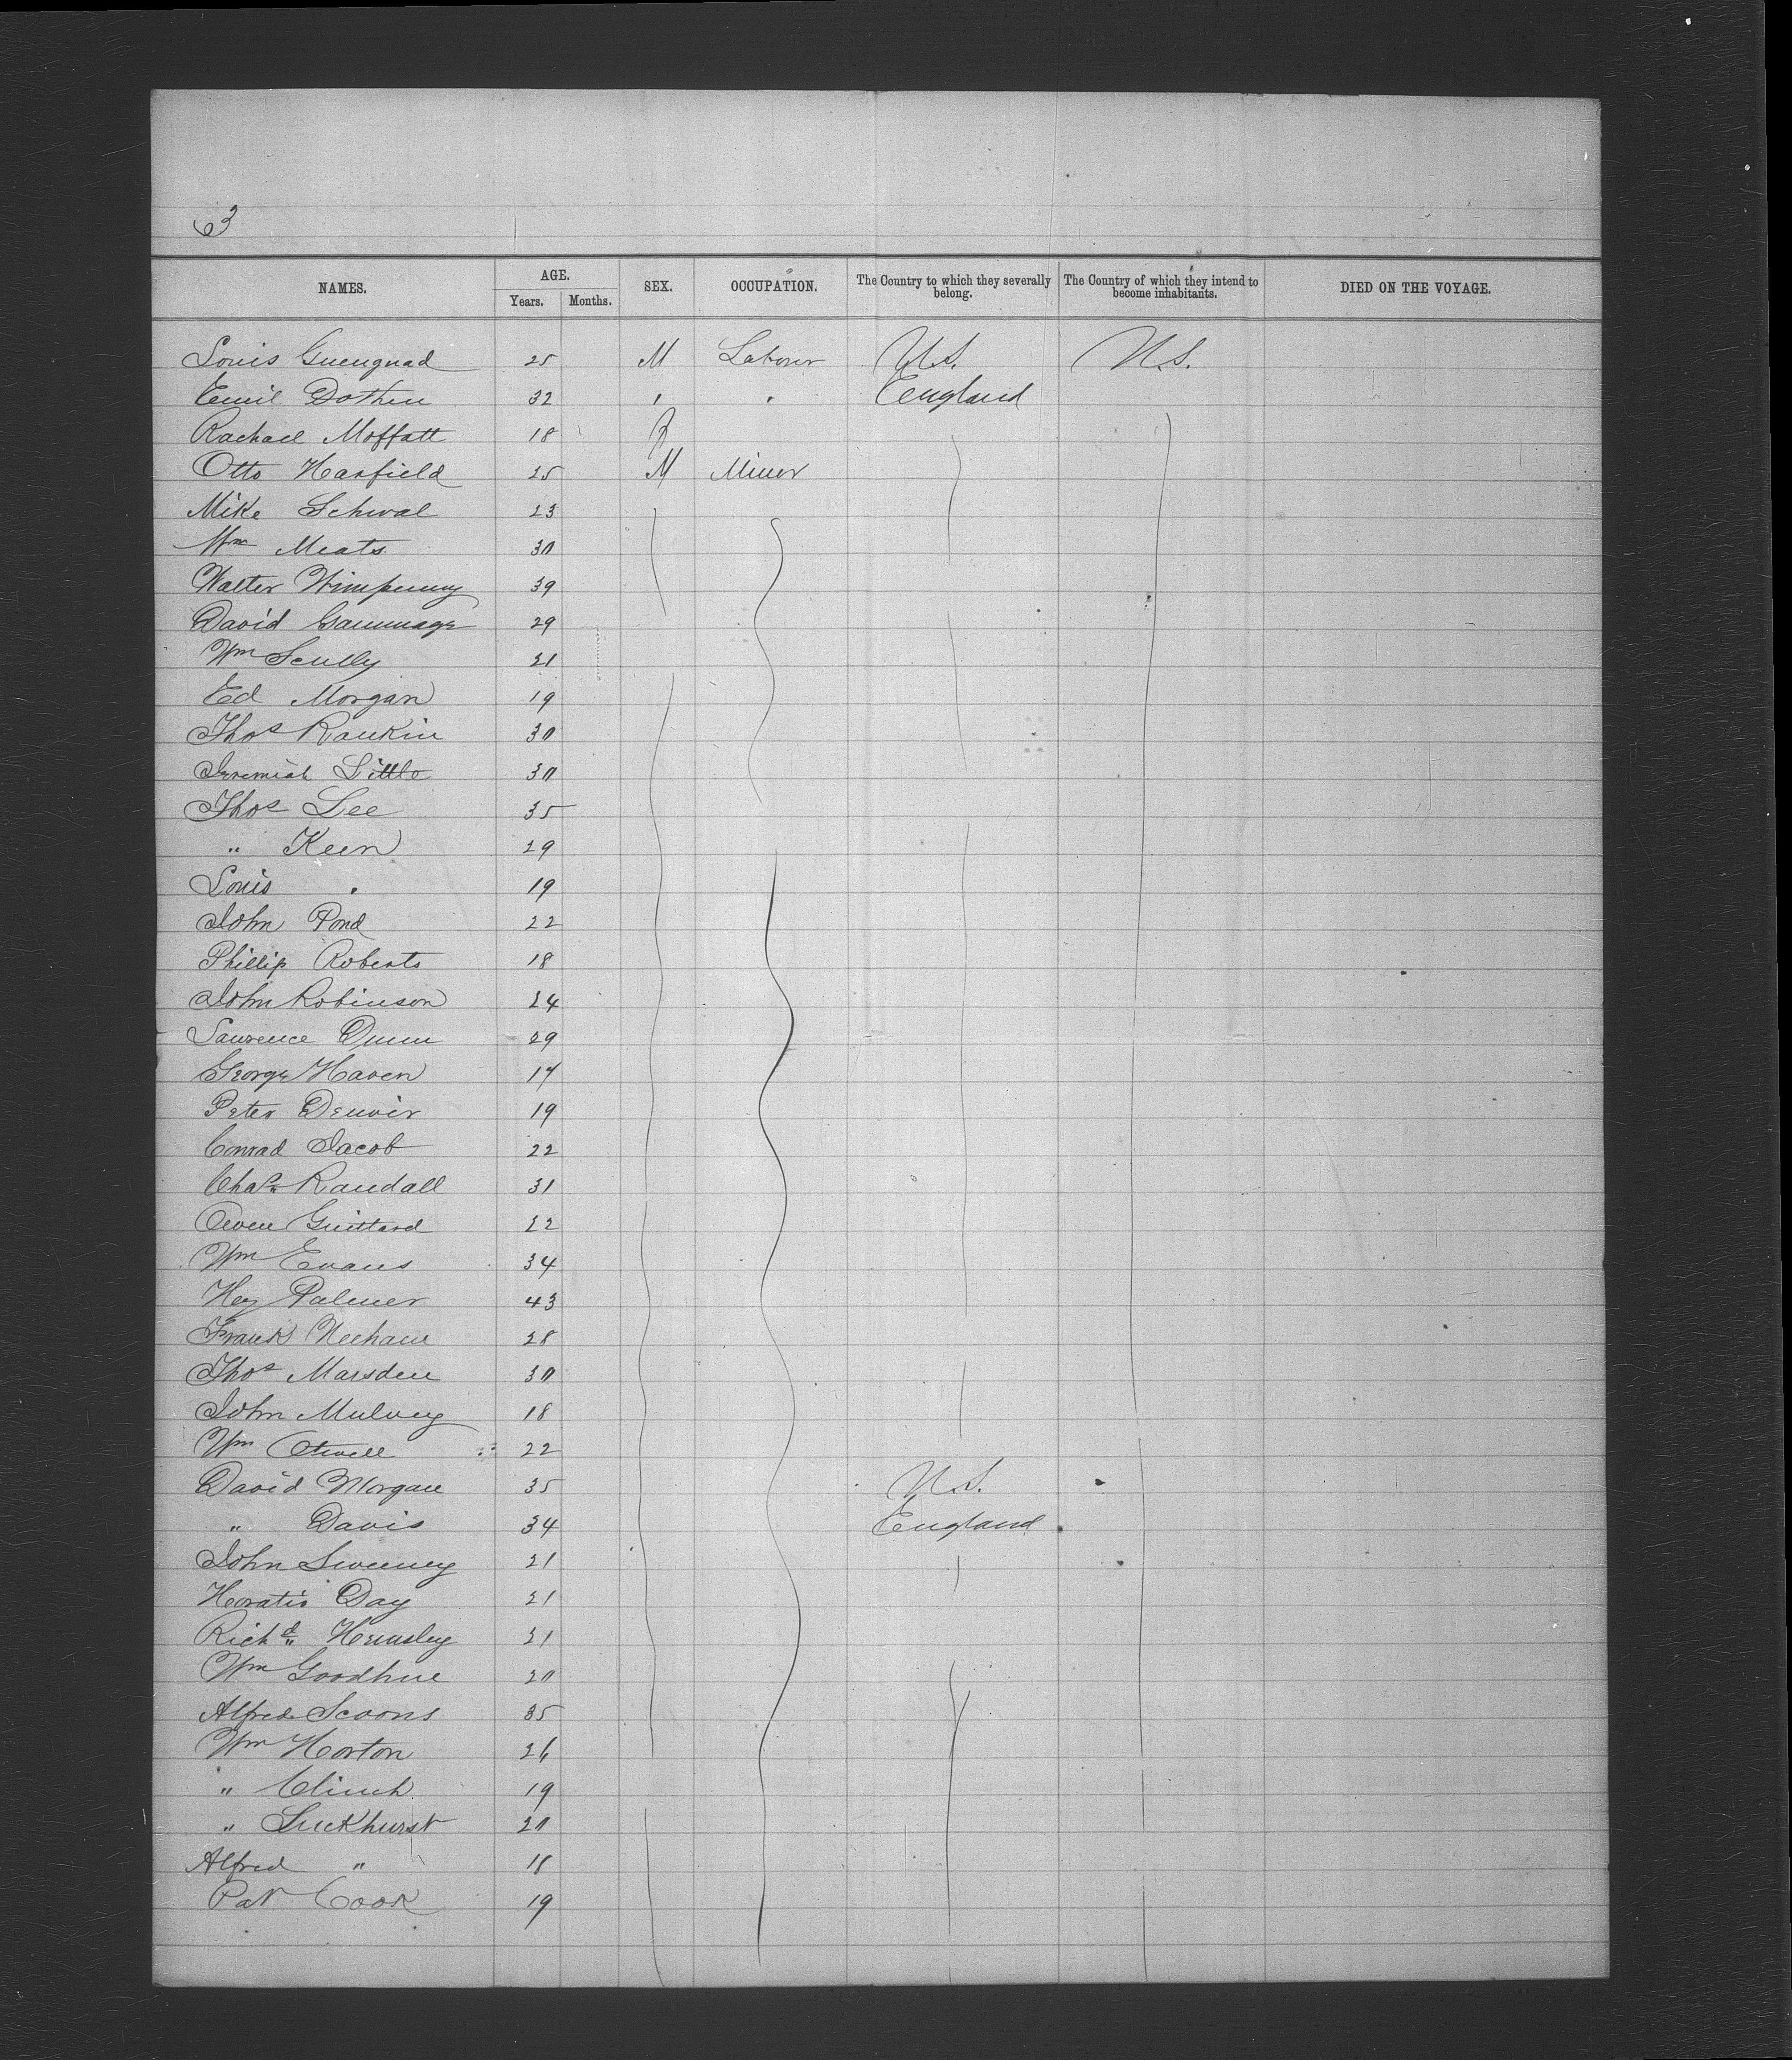 63
NAMES. AGE. Years. Months. SEX. OCCUPATION. The Country to which they severally belong. The Country of which they intend to become inhabitants. DIED ON THE VOYAGE.
Louis 25 M Laborer U.S. U.S.
Emil Dothen 32 " " England
Rachael Moffatt 18
Otto Harfield 25 M Miner
Mike Schwal 23
Wm Meats 30
Walter Wimpenny 39
David Gammage 29
Wm Scully 21
Ed Morgan 19
Thos Rankin 30
Jeremiah Little 30
Thos Lee 35
" Keen 29
Louis " 19
John Pond 22
Phillip Roberts 18
John Robinson 24
Lawrence Dunn 29
George Haven 17
Peter Denvir 19
Conrad Jacob 22
Chas Randall 31
Owen Guittard 22
Wm Evans 34
Hey Palmer 43
Frank 28
Thos Marsden 30
John Mulvey 18
Wm Otwell 22
David Morgan 35 U.S.
" Davis 34 England
John Sweeney 21
Horatio Day 21
Richd Hemsley 21
Wm Goodhue 20
Alfred Scoons 35
Wm Horton 26
" Clinch 19
" Luckhurst 20
Alfred " 18
Pat Cook 19